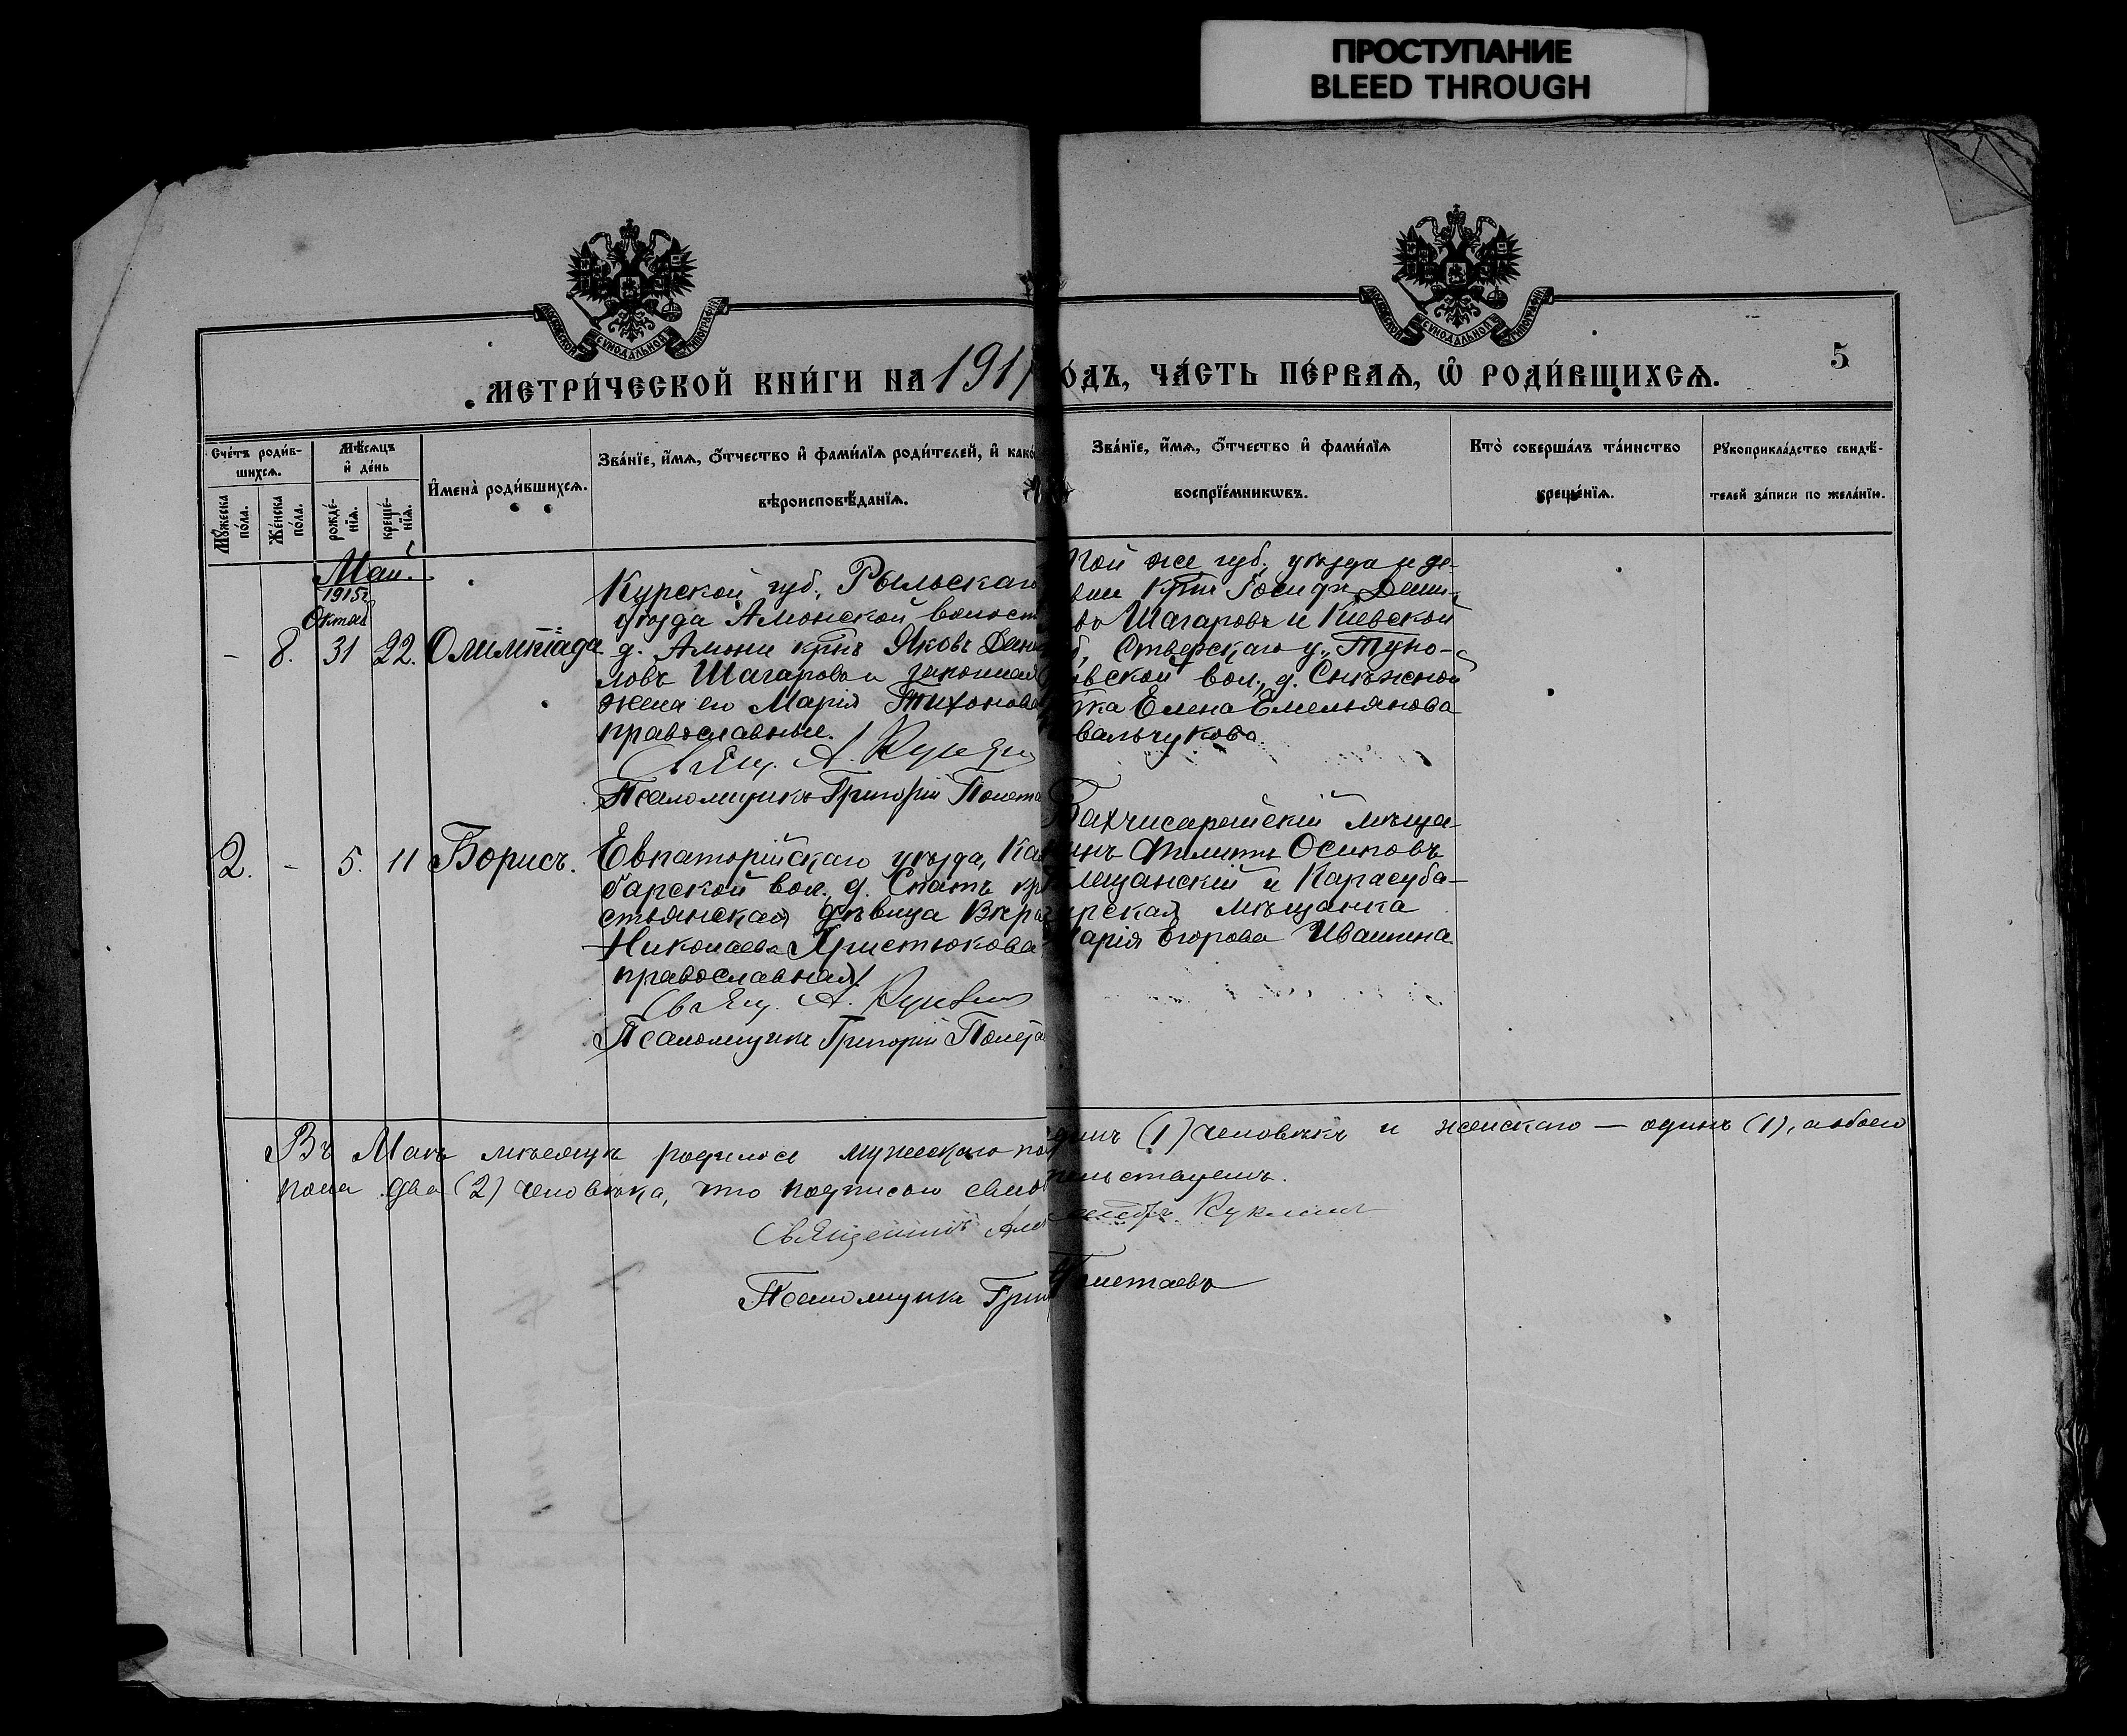 ПРОСТУПАНИЕ
BLEED THROUGH
МОСКОВСКОЙ СѴНОДАЛЬНОЙ ТИПОГРАФІИ
МОСКОВСКОЙ СѴНОДАЛЬНОЙ ТИПОГРАФІИ
5
МЕТРИ́ЧЕСКОЙ КНИ́ГИ НА 1917 ОДЪ, ЧА́СТЬ ПЕ́РВАѦ, Ѡ РОДИ́ВШИХСѦ.
Сче́тъ роди́в-
шихсѧ.
Мꙋ́жеска по́ла.
Же́нска по́ла.
Мѣ́сѧцъ
и де́нь
рожде́-
нїѧ.
креще́-
нїѧ.
Имена̀ роди́вшихсѧ.
Зва́нїе, и́мѧ, ѻ́тчество и фами́лїѧ роди́телей, и како́
вѣроисповѣ́данїѧ.
Зва́нїе, и́мѧ, ѻ́тчество и фами́лїѧ
воспрїе́мникѡвъ.
Кто̀ соверша́лъ та́инство
креще́нїѧ.
Рꙋкоприкла́дство свидѣ́-
телей за́писи по жела́нїю.
Май.
1915г.
Октяб
– 8. 31 22. Олимпіада
Курской губ., Рыльскаго
уѣзда Амонской волост
д. Амони крнъ Яковъ Дани
ловъ Шагаровъ и законная
жена его Марія Тихонова
православные.
Свящ. А. Кукли
Псаломщикъ Григорій Полета
той же губ., уѣзда и де-
вни крнъ Іосифъ Дани-
въ Шагаровъ и Кіевской
б, Сквирскаго у., Туно-
вской вол., д. Снѣжной
тка Елена Емельянова
вальчукова.
2. – 5. 11 Борисъ.
Евпаторійскаго уѣзда, Ка
барской вол. д. Спатъ кре
стьянская дѣвица Вѣра
Николаева Христюкова
православная
Свящ. А. Куклин
Псаломщикъ Григорій Полета
Бахчисарайскій мѣща-
инъ Филиппъ Осиповъ
лещанскій и Карасуба-
арская мѣщанка
Марія Егорова Ивашина
Въ Маѣ мѣсяцѣ родилось мужескаго по динъ (1) человѣкъ и женскаго – одинъ (1), а обоего
пола два (2) человѣка, что подписью свидѣтельствуемъ.
Священникъ Але Куклинъ
Псаломщикъ Григ Полетаевъ